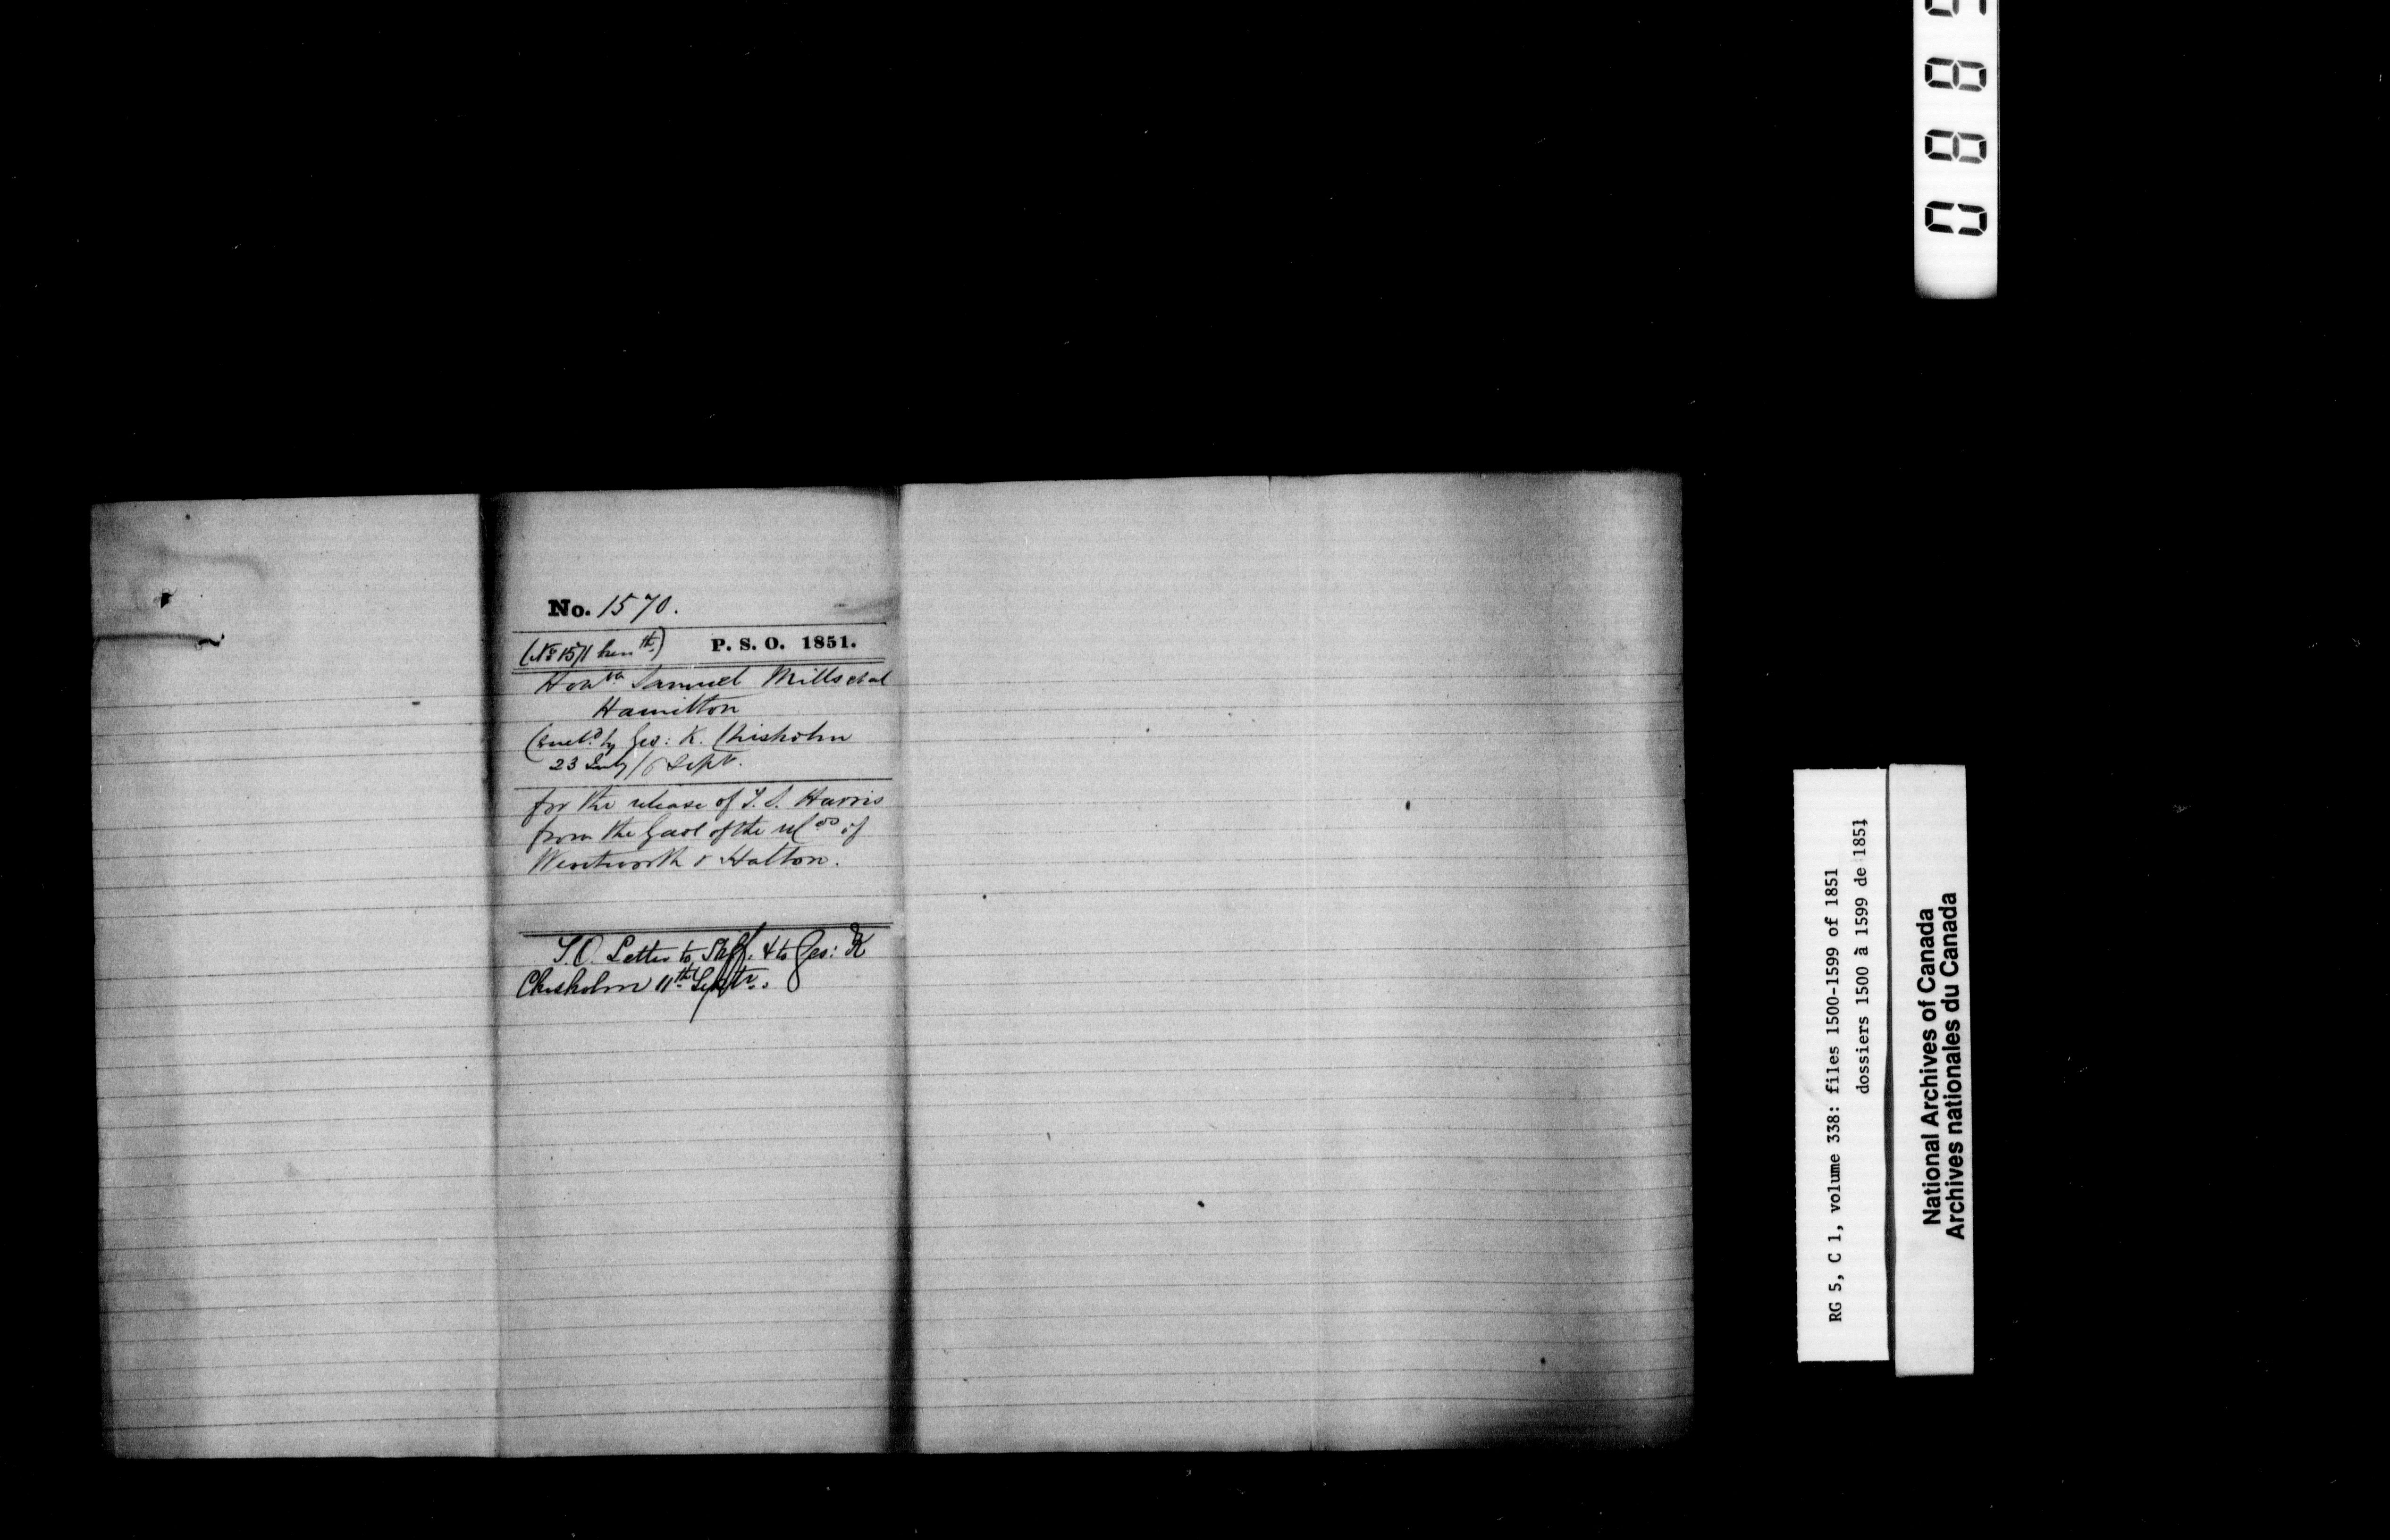 No. 1570.
(No 1571 herewth) P. S. O. 1851.
Honble Samuel Mills et al
Hamilton
(encld by Geo: K. Chisholm
23 July/6 Sept.
for the release of T. S. Harris
from the Gaol of the
Wentworth & Halton.
Letter to Shff. & to Geo: K
Chisholm 11th Septr.
RG 5, C 1, volume 338: files 1500-1599 of 1851
dossiers 1500 à 1599 de 1851
National Archives of Canada
Archives nationales du Canada
0 8 8